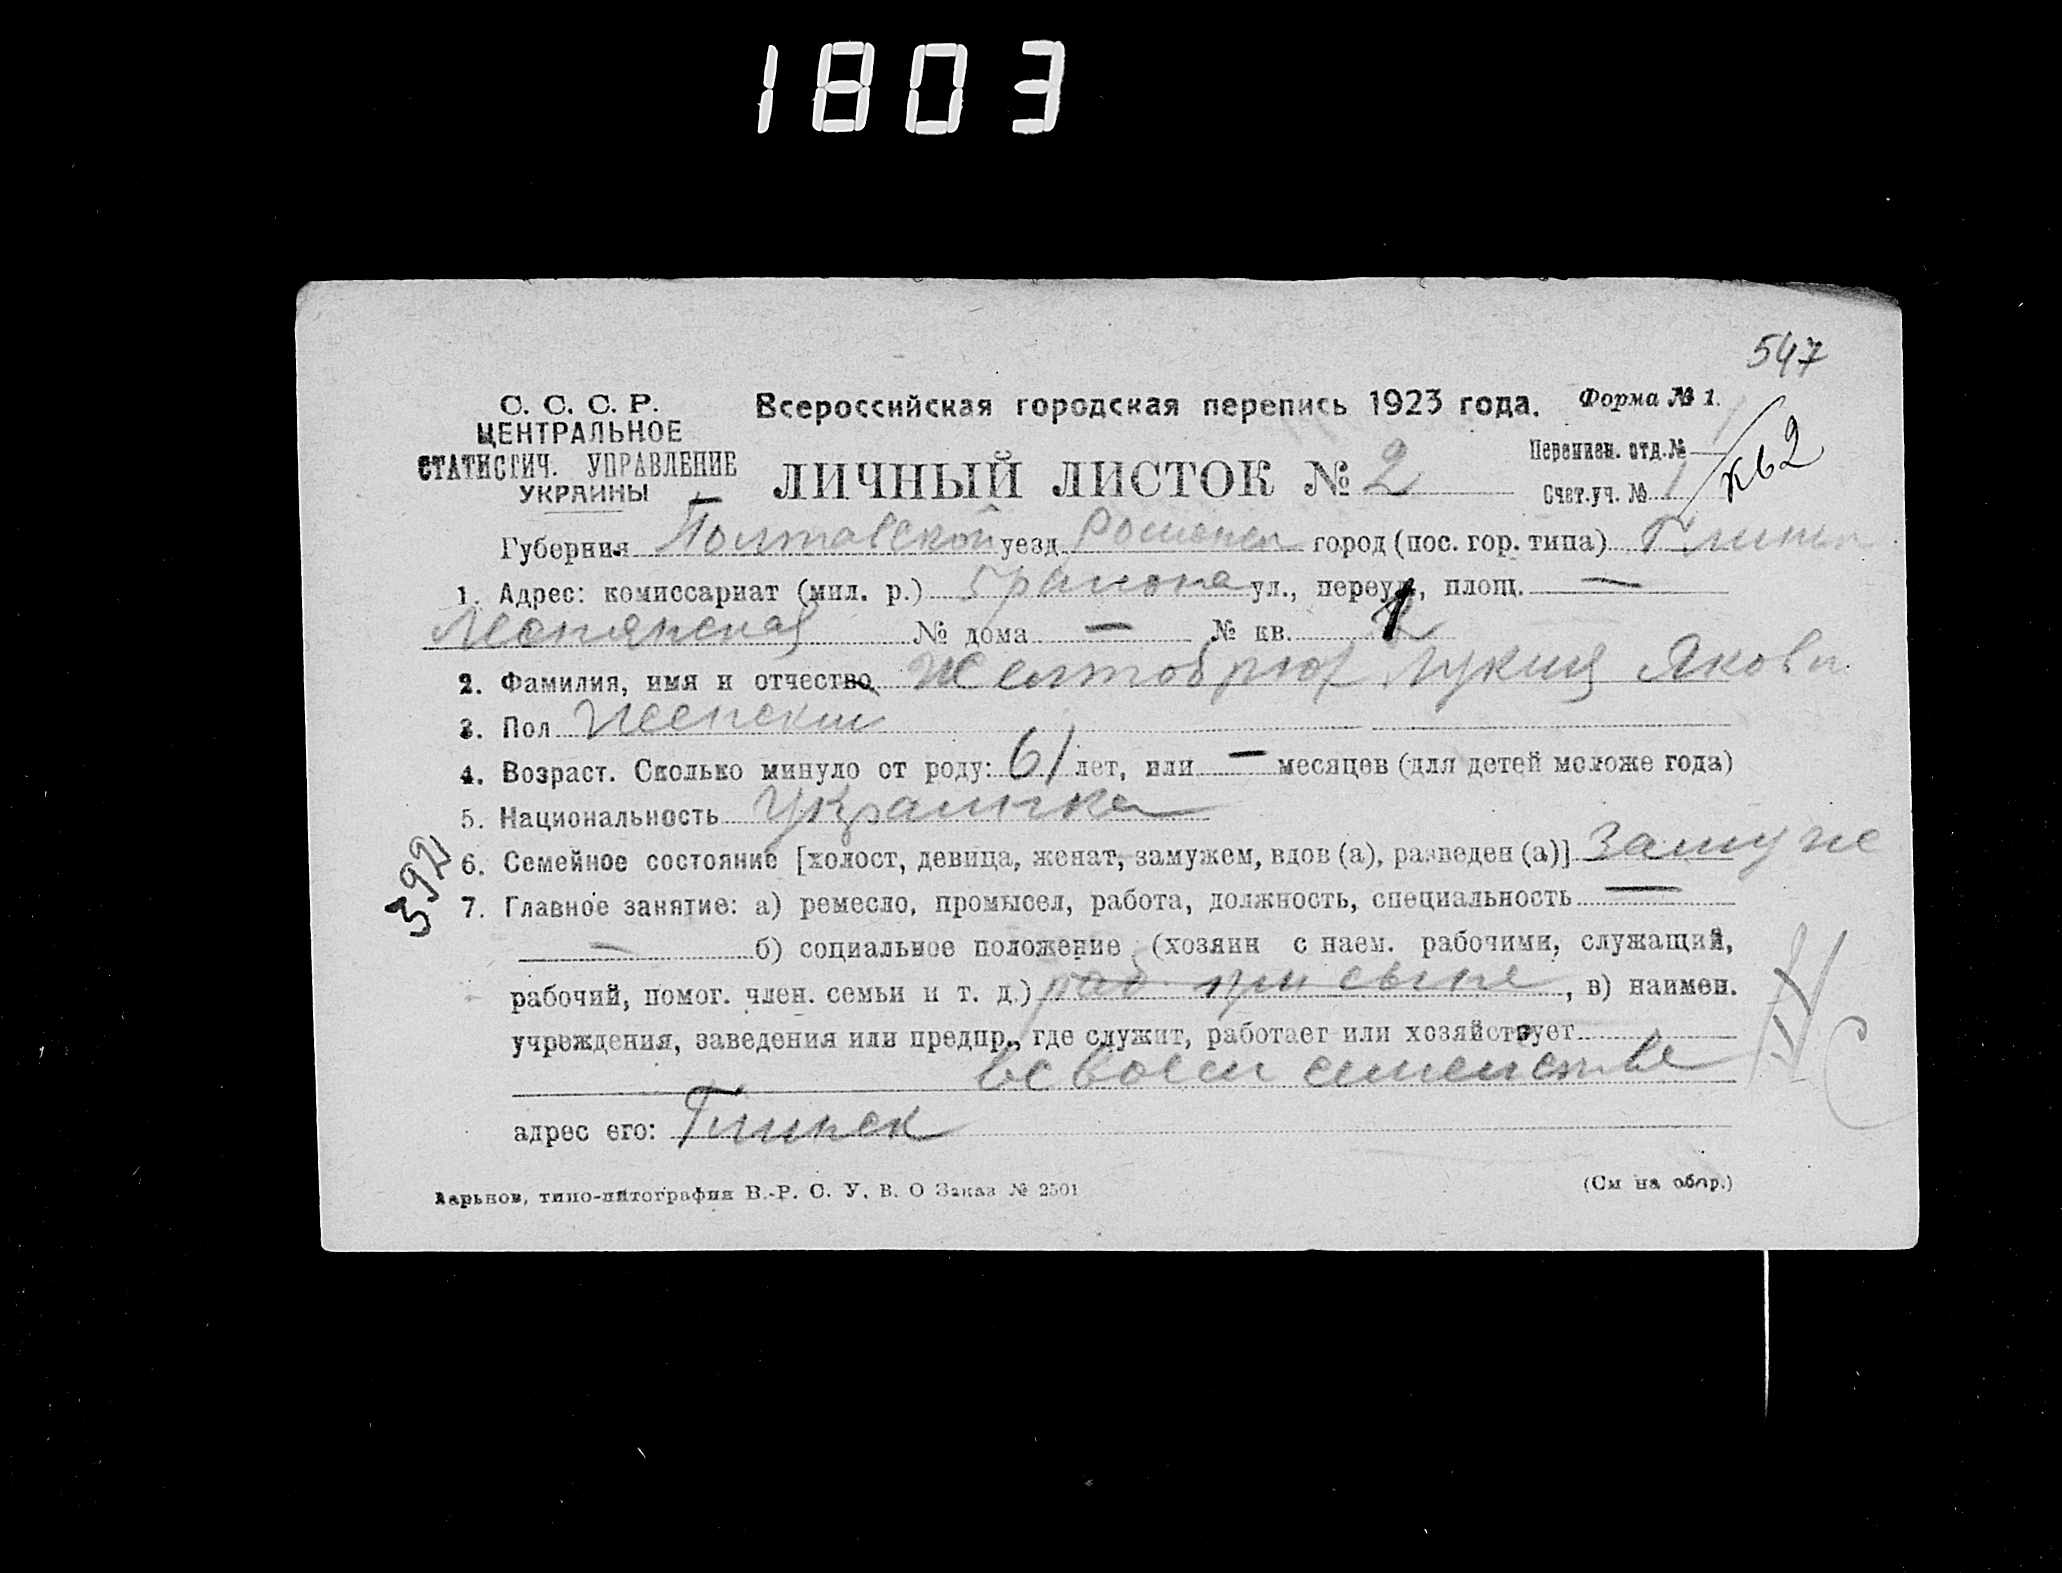 1803
547
С. С. С. Р.
ЦЕНТРАЛЬНОЕ
СТАТИСТИЧ. УПРАВЛЕНИЕ
УКРАИНЫ
Всероссийская городская перепись 1923 года. Форма № 1.
ЛИЧНЫЙ ЛИСТОК № 2
Переписн. отд. №
Счет. уч. № 1
Губерния Полтавской уезд Роменск город (пос. гор. типа) Глинск
1. Адрес: комиссариат (мил. р.) 5 района ул., переул., площ. —
№ дома — № кв. 1
2. Фамилия, имя и отчество Желтобрюх Лукия Яковл
3. Пол Женский
4. Возраст. Сколько минуло от роду: 61 лет, или — месяцев (для детей моложе года)
5. Национальность Украинка
392
6. Семейное состояние [холост, девица, женат, замужем, вдов (а), разведен (а)] Замуже
7. Главное занятие: а) ремесло, промысел, работа, должность, специальность —
— б) социальное положение (хозяин с наем. рабочими, служащий,
рабочий, помог. член. семьи и т. д.) раб. при сыне, в) наимен.
учреждения, заведения или предпр., где служит, работает или хозяйствует
всвоем семействе
адрес его: Глинск
Харьков, типо-литография В.-Р. С. У. В. О Заказ № 2501
(См на обор.)